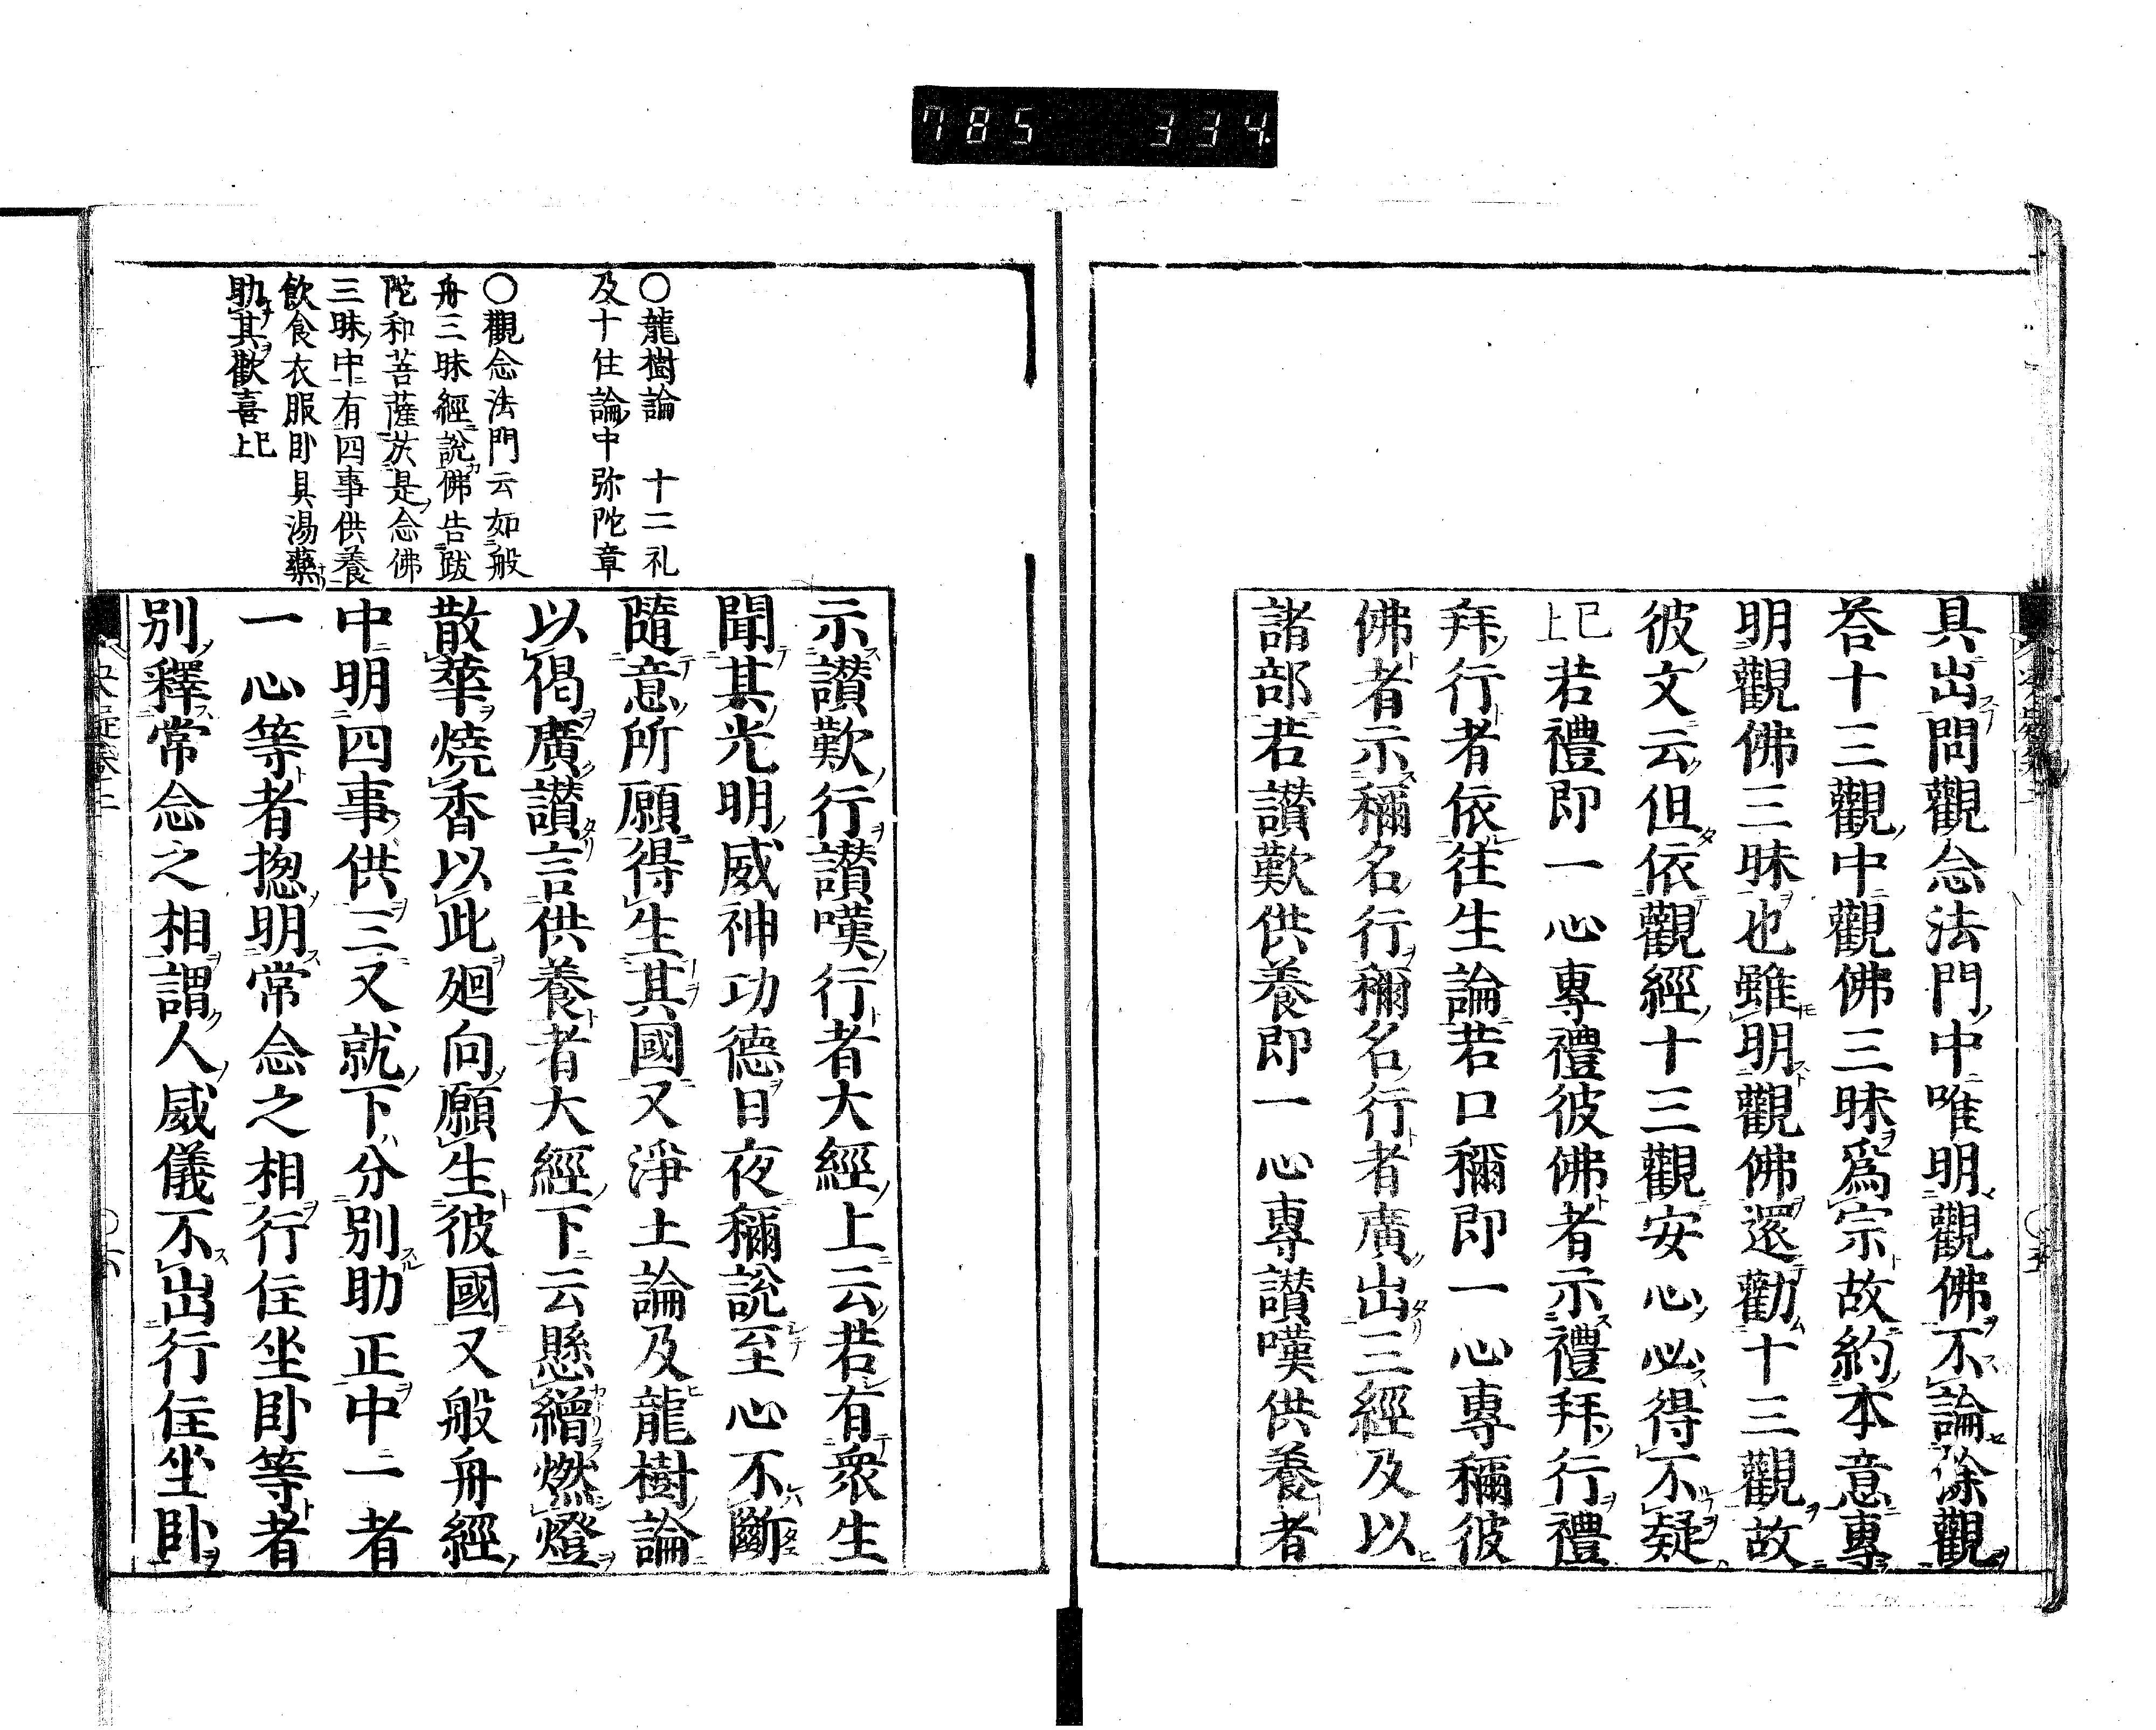 785 334
具出問觀念法門中唯明觀佛不論餘觀
荅十三觀中觀佛三昧爲宗故約本意專
明觀佛三昧也雖明觀佛還勸十三觀故
彼文云但依觀經十三觀安心必得不疑
已上若禮即一心專禮彼佛者示禮拜行禮
拜行者依往生論若口稱即一心專稱彼
佛者示稱名行稱名行者廣出三經及以
諸部若讃歎供養即一心專讃嘆供養者
〇龍樹論 十二礼
及十住論中弥陀章
〇觀念法門云如般
舟三昧經說佛告跋
陀和菩薩於是念佛
三昧中有四事供養
飲食衣服臥具湯藥
助其歡喜已上
示讃歎行讃嘆行者大經上云若有衆生
聞其光明威神功德日夜稱說至心不斷
隨意所願得生其國又淨土論及龍樹論
以偈廣讃言供養者大經下云懸繒燃燈
散華燒香以此廻向願生彼國又般舟經
中明四事供三又就下分別助正中一者
一心等者揔明常念之相行住坐臥等者
別釋常念之相謂人威儀不出行住坐臥